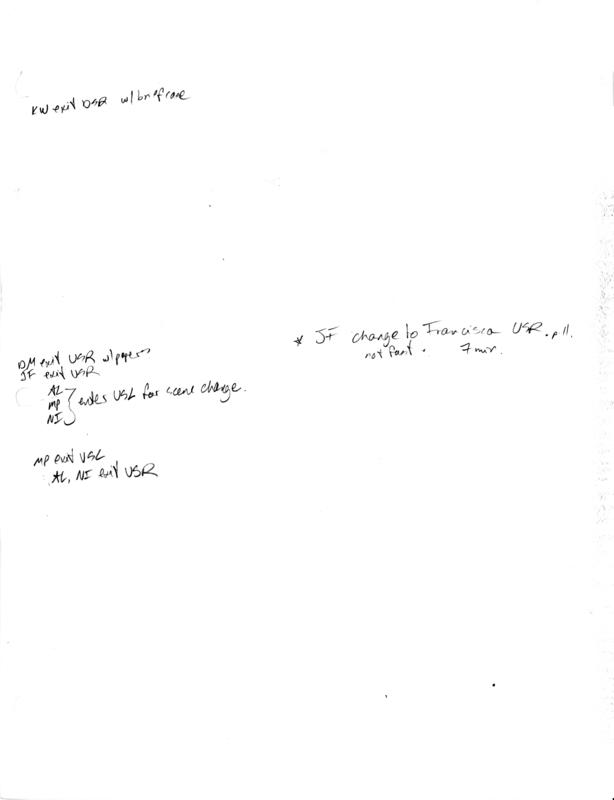 KW exit DSR w/briefcase
* JF change to Francisca USR. p11.
not fast. 7 min.
DM exit USR w/papers
JF exit USR
AL
MP } enter USL for scene change.
NI
MP exit USL
AL, NI exit USR